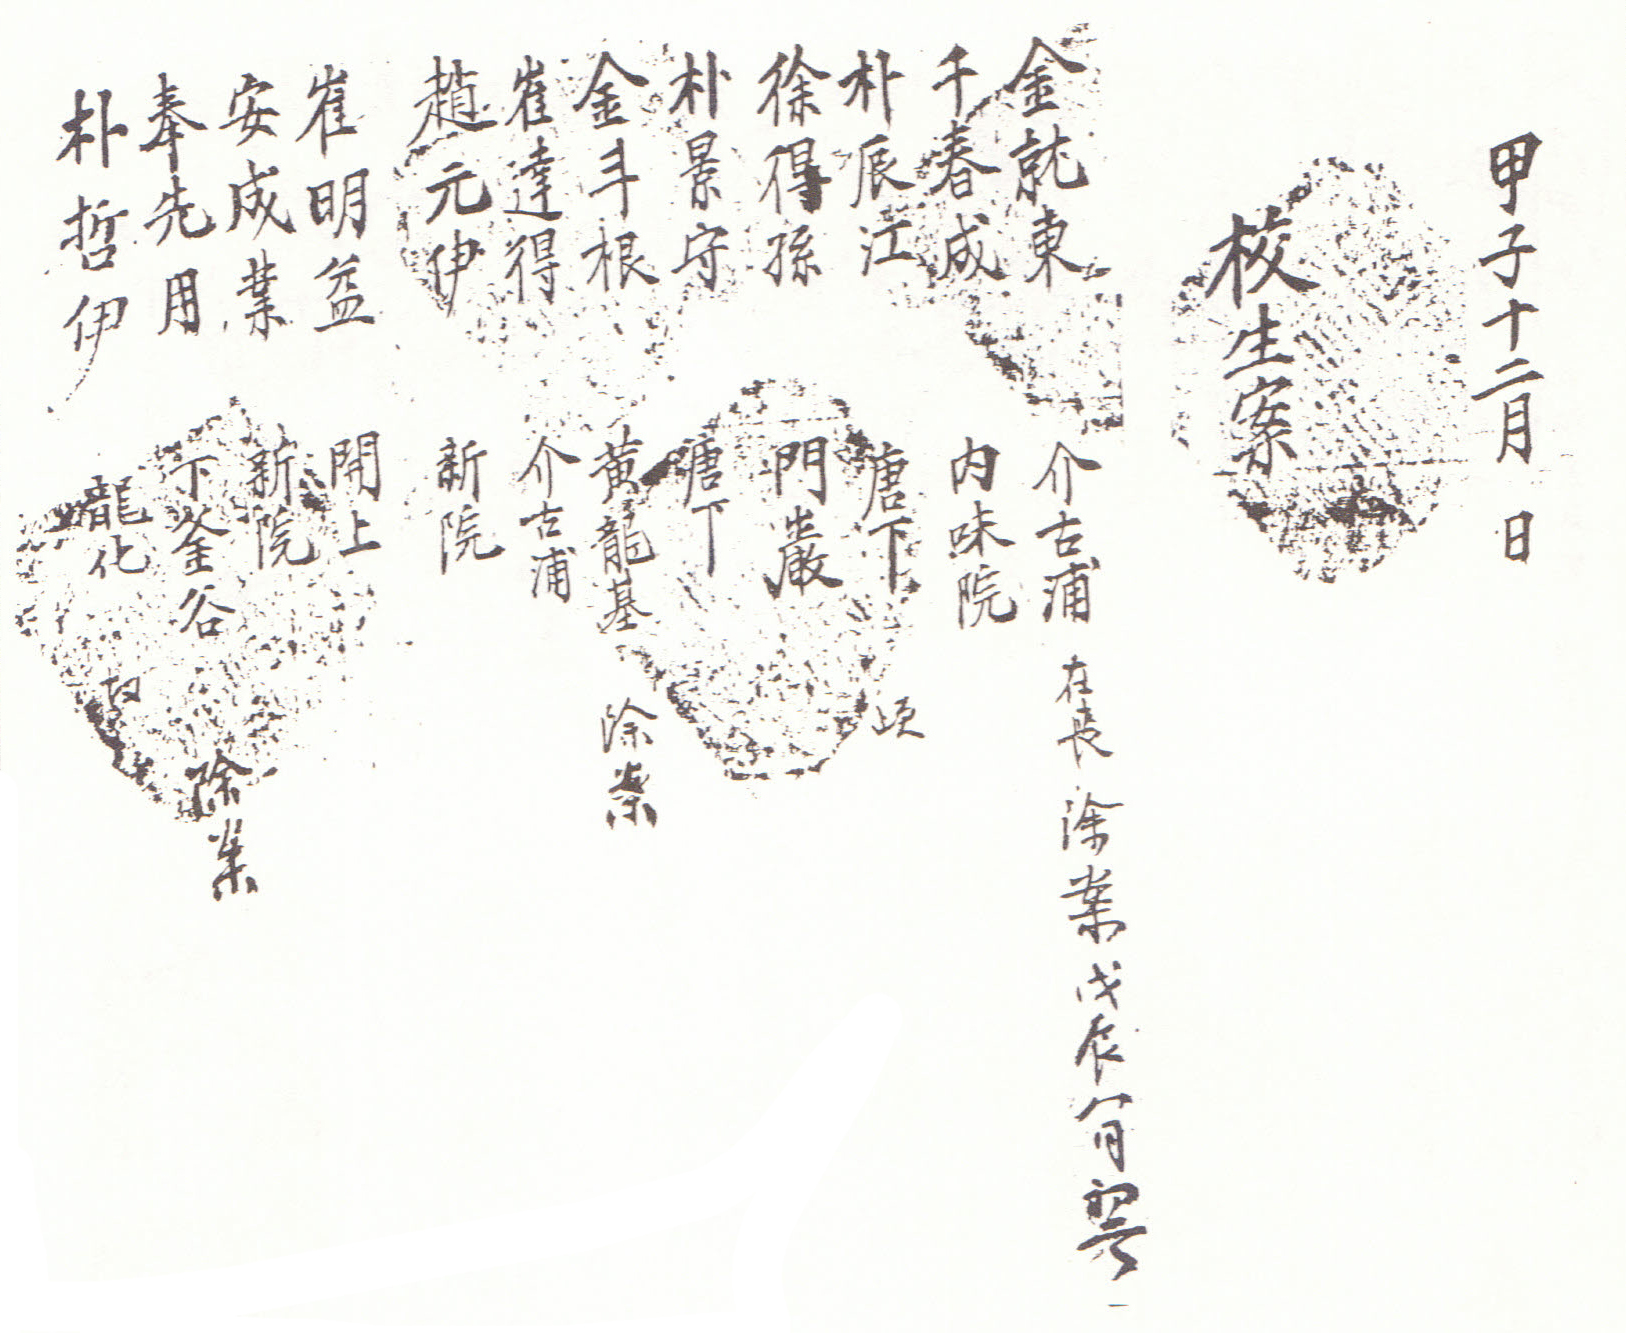 甲子十二月 日
校生案
金就東 介古浦 在喪 除案 戊辰
千春成 內味院
朴辰江 唐下 頉
徐得孫 門巖
朴景守 塘下
金斗根 黃龍基 除案
崔達得 介古浦
趙元伊 新院
崔明益 開上
安成業 新院
奉先用 下釜谷 除案
朴哲伊 龍化